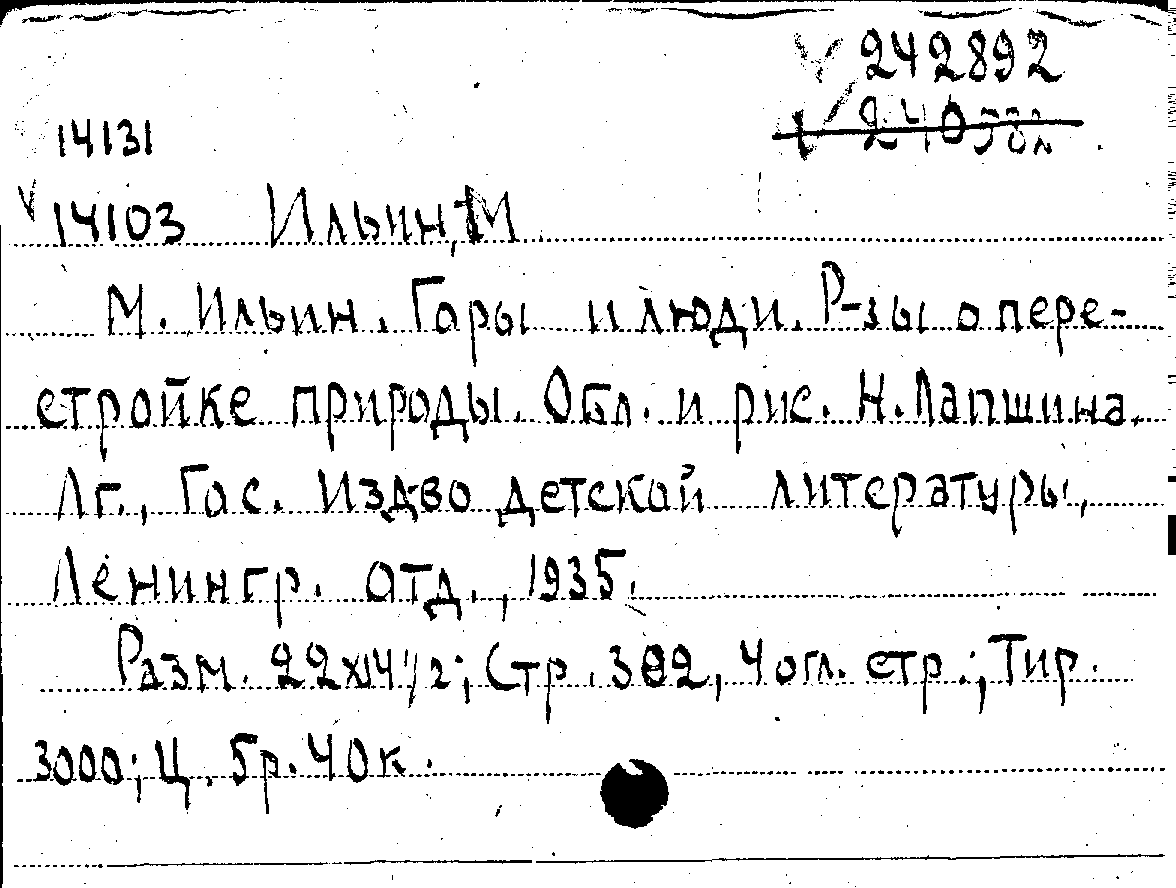 242892
14131
14103 Ильин, М
М. Ильин. Горы и люди. Р-зы о пере-
стройке природы. Обл. и рис. Н. Лапшина.
Лг., Гос. Изд-во детской литературы,
Ленингр. отд., 1935.
Разм. 22х14 1/2; Стр. 382, 4 огл. стр.; Тир.
3000; Ц. 5р. 40к.